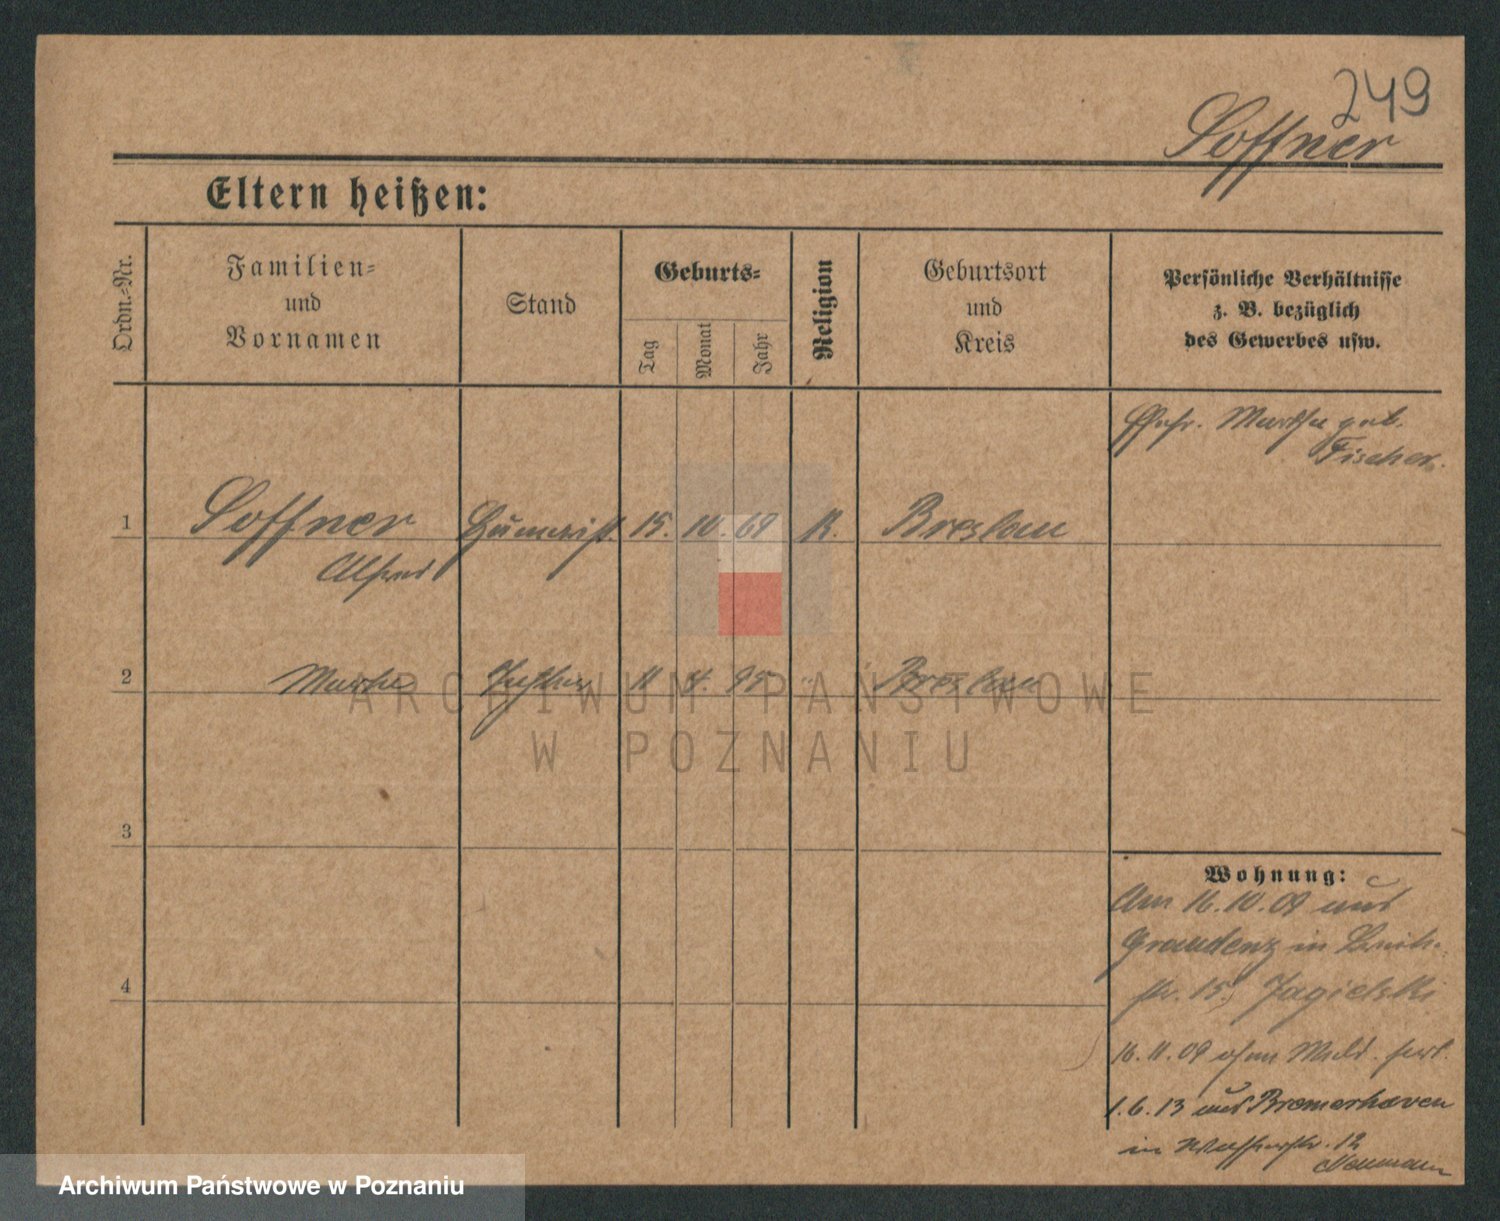 249
Soffner
Eltern heißen:
Ordn.-Nr.
Familien-
und
Vornamen
Stand
Geburts-
Tag
Monat
Jahr
Religion
Geburtsort
und
Kreis
Persönliche Verhältnisse
z. B. bezüglich
des Gewerbes usw.
Ehefr. Martha geb.
Fischer.
1 Soffner Humorist 15. 10. 69 K. Breslau
Alfred
2 Martha Tochter 11 4. 95 " Breslau
3
4
Wohnung:
Am 16.10.09 aus
Graudenz in
str. 15, Jagielski
16.11.09 ohne Meld. fort.
1.6.13 aus Bremerhaven
in Wasserstr. 12
Neumann
ARCHIWUM PAŃSTWOWE
W POZNANIU
Archiwum Państwowe w Poznaniu